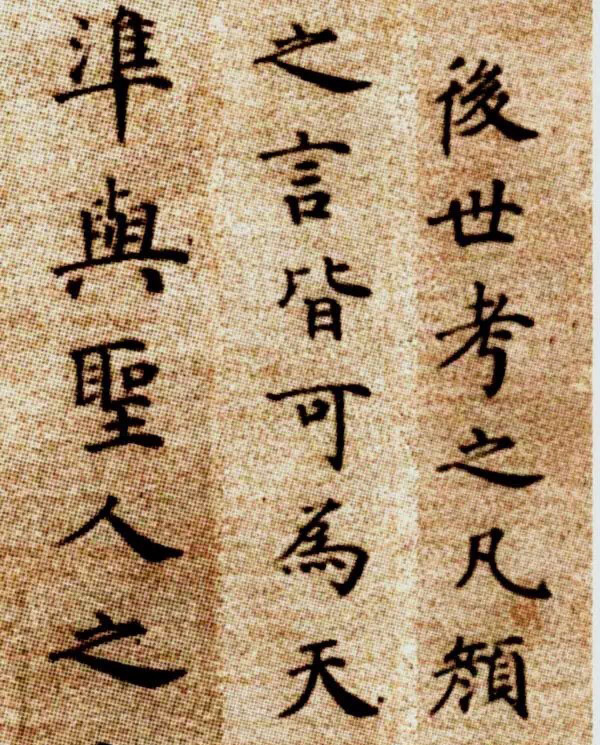 後世考之凡顏
之言皆可為天
準與聖人之